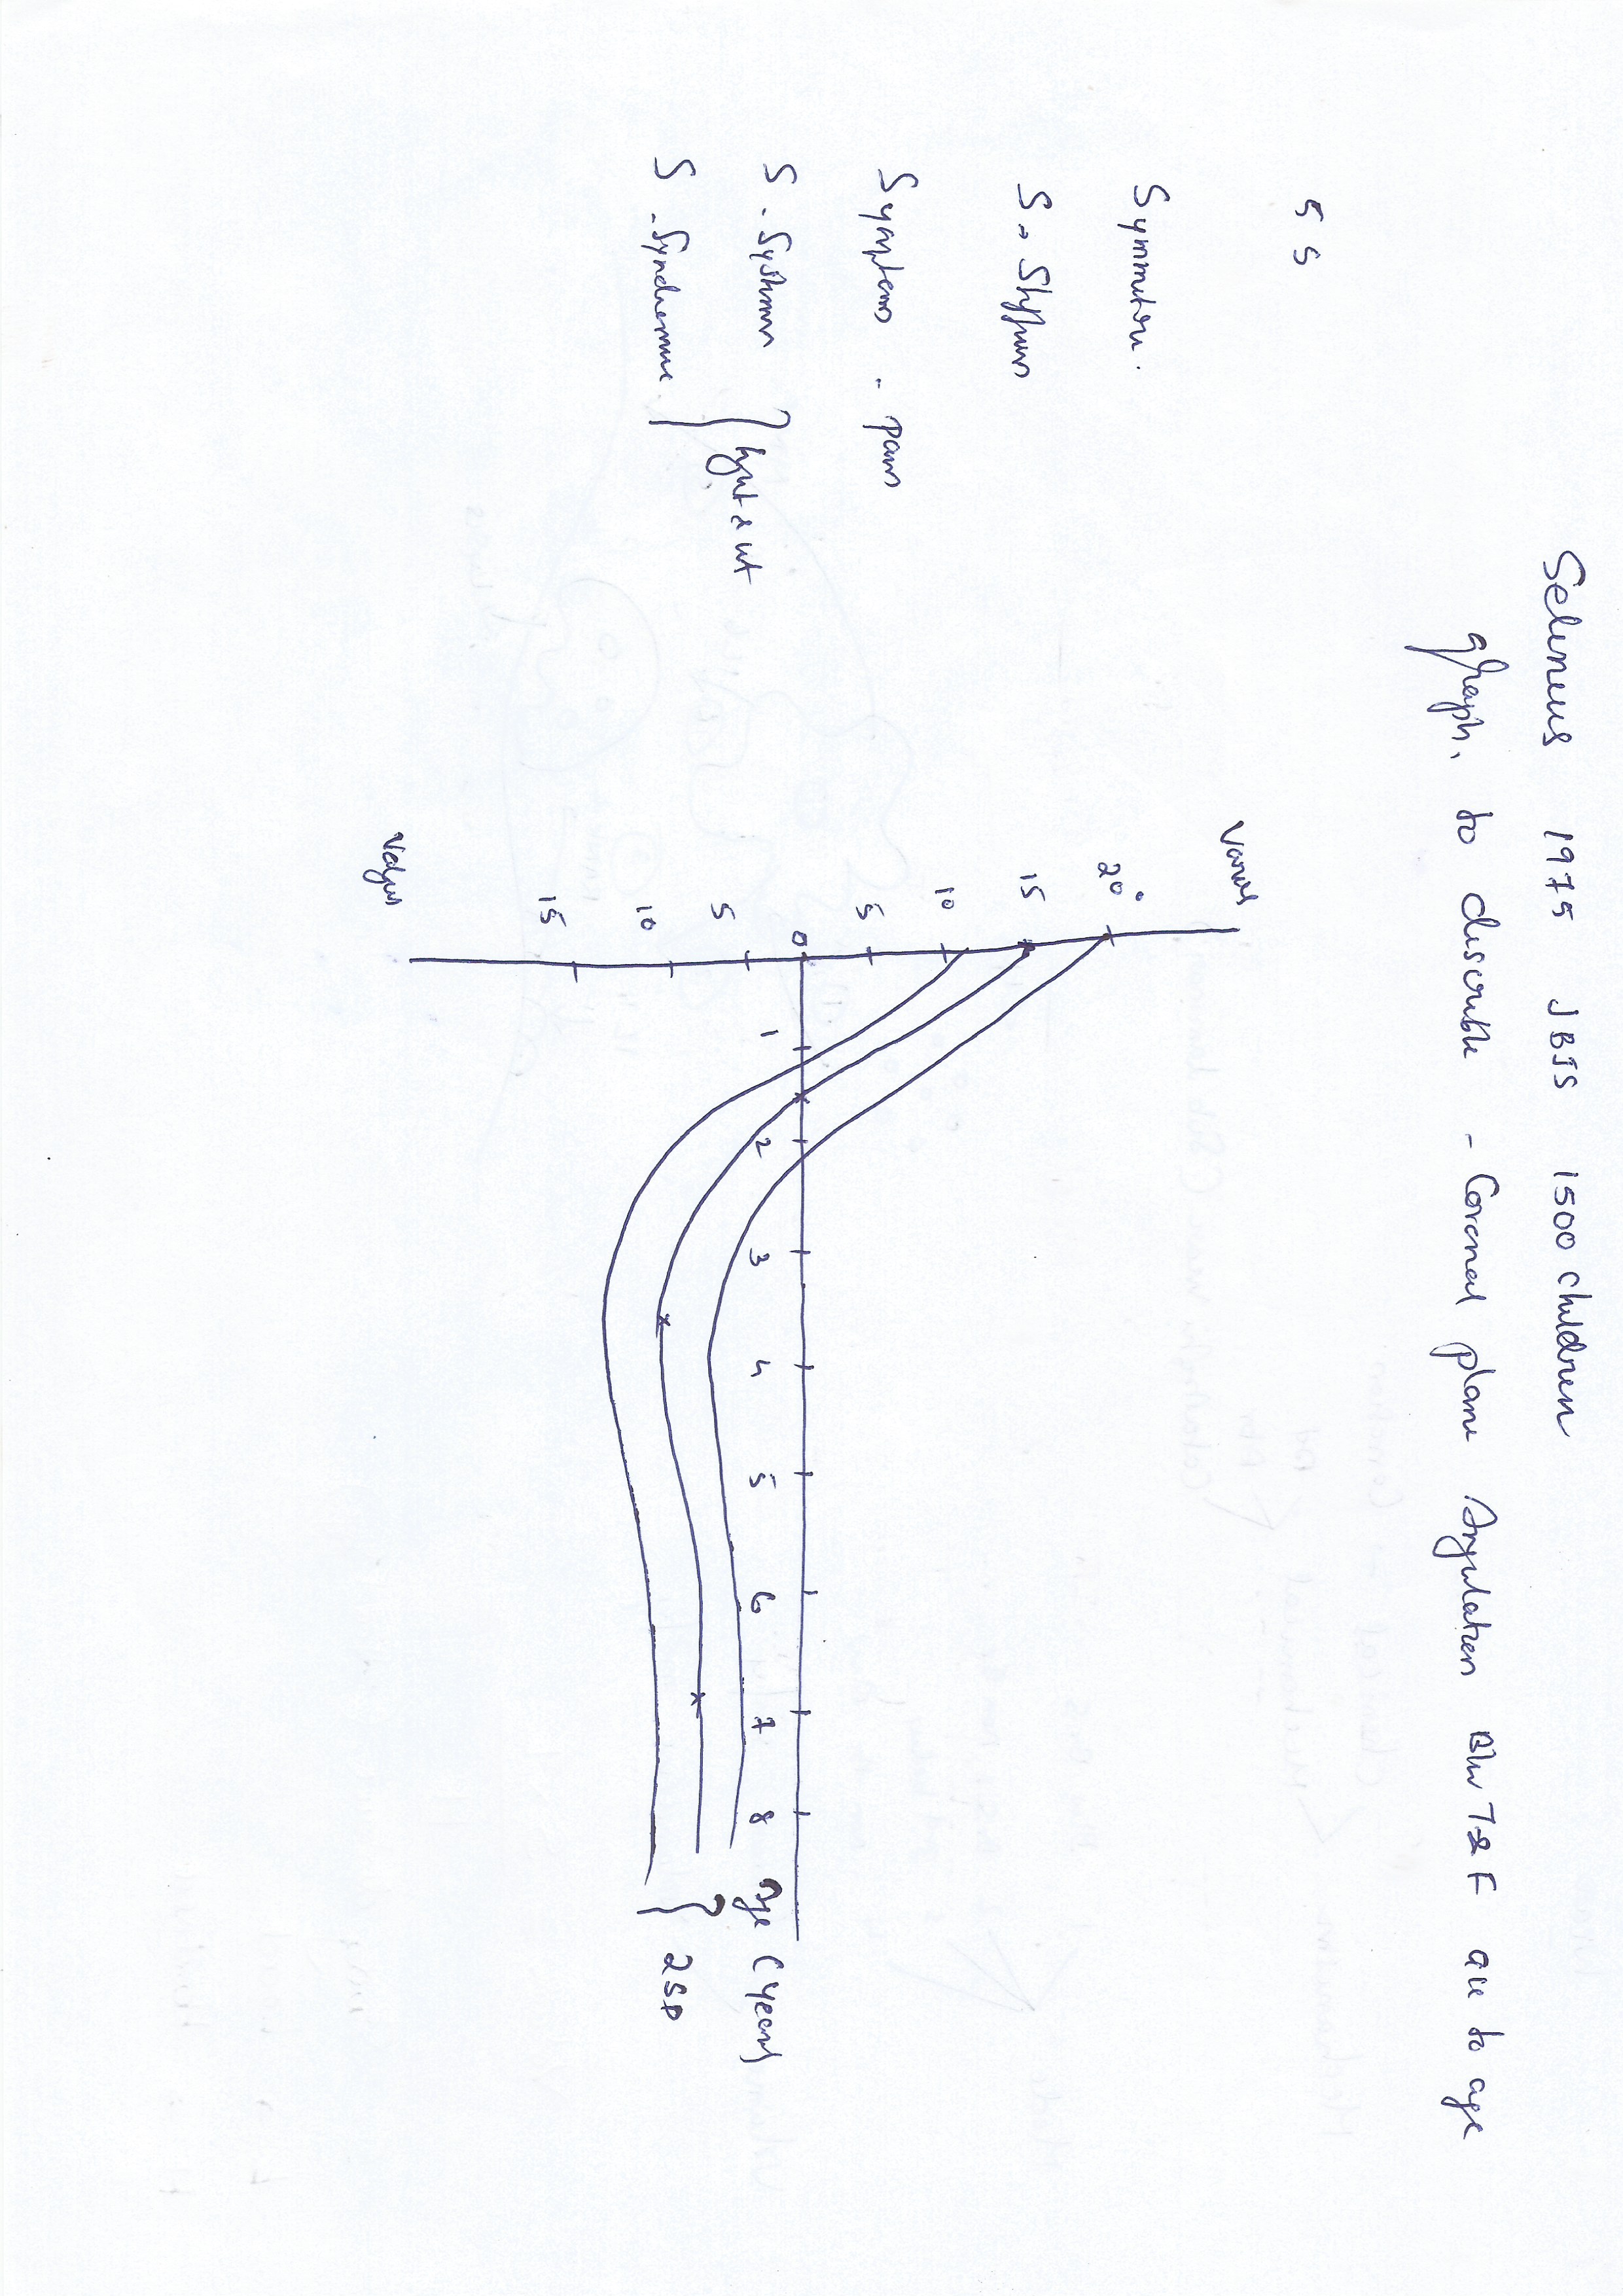 Seleneus 1975 JBJS 1500 children
graph, to describe - Coronal plane Angulation Btw T & F acc to age
5 S
Symmetric.
S → Stiffness
Symptoms - pain
S - System
S - Syndromic
height & wt
Varus
20°
15
10
5
0
1 2 3 4 5 6 7 8 Age (years)
5
10
15
2SD
Valgus